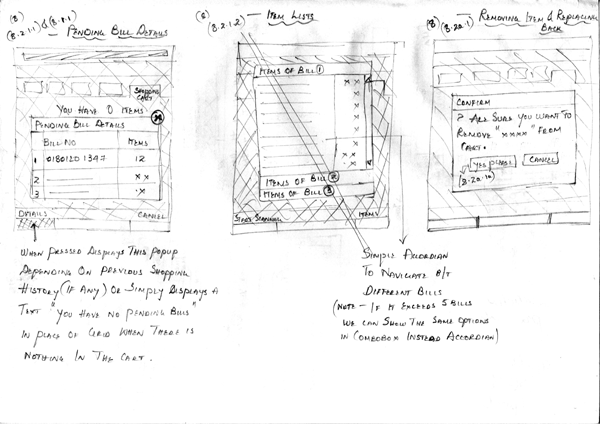 (8)
(8.2.1.1) & (8.1.1)
— PENDING BILL DETAILS
SHOPPING
CART
YOU HAVE 0 ITEMS
PENDING BILL DETAILS
BILL NO
ITEMS
1 0180120 1347 12
2 x x
3 x
DETAILS
CANCEL
WHEN PRESSED DISPLAYS THIS POPUP
DEPENDING ON PREVIOUS SHOPPING
HISTORY (IF ANY) OR SIMPLY DISPLAYS A
TEXT "YOU HAVE NO PENDING BILLS"
IN PLACE OF GRID WHEN THERE IS
NOTHING IN THE CART.
(8)
(8.2.1.2) — ITEM LISTS
ITEMS OF BILL 1
x x
x x
x
x
x
x x
x
ITEMS OF BILL 2
ITEMS OF BILL 3
START SCANNING
ITEMS
SIMPLE ACCORDIAN
TO NAVIGATE B/T
DIFFERENT BILLS
(NOTE – IF IT EXCEEDS 5 BILLS
WE CAN SHOW THE SAME OPTIONS
IN COMBOBOX INSTEAD ACCORDIAN)
(8)
— REMOVING ITEM & REPLACING
BACK
CONFIRM
? ARE SURE YOU WANT TO
REMOVE "xxxx" FROM
CART.
YES PLEASE
CANCEL